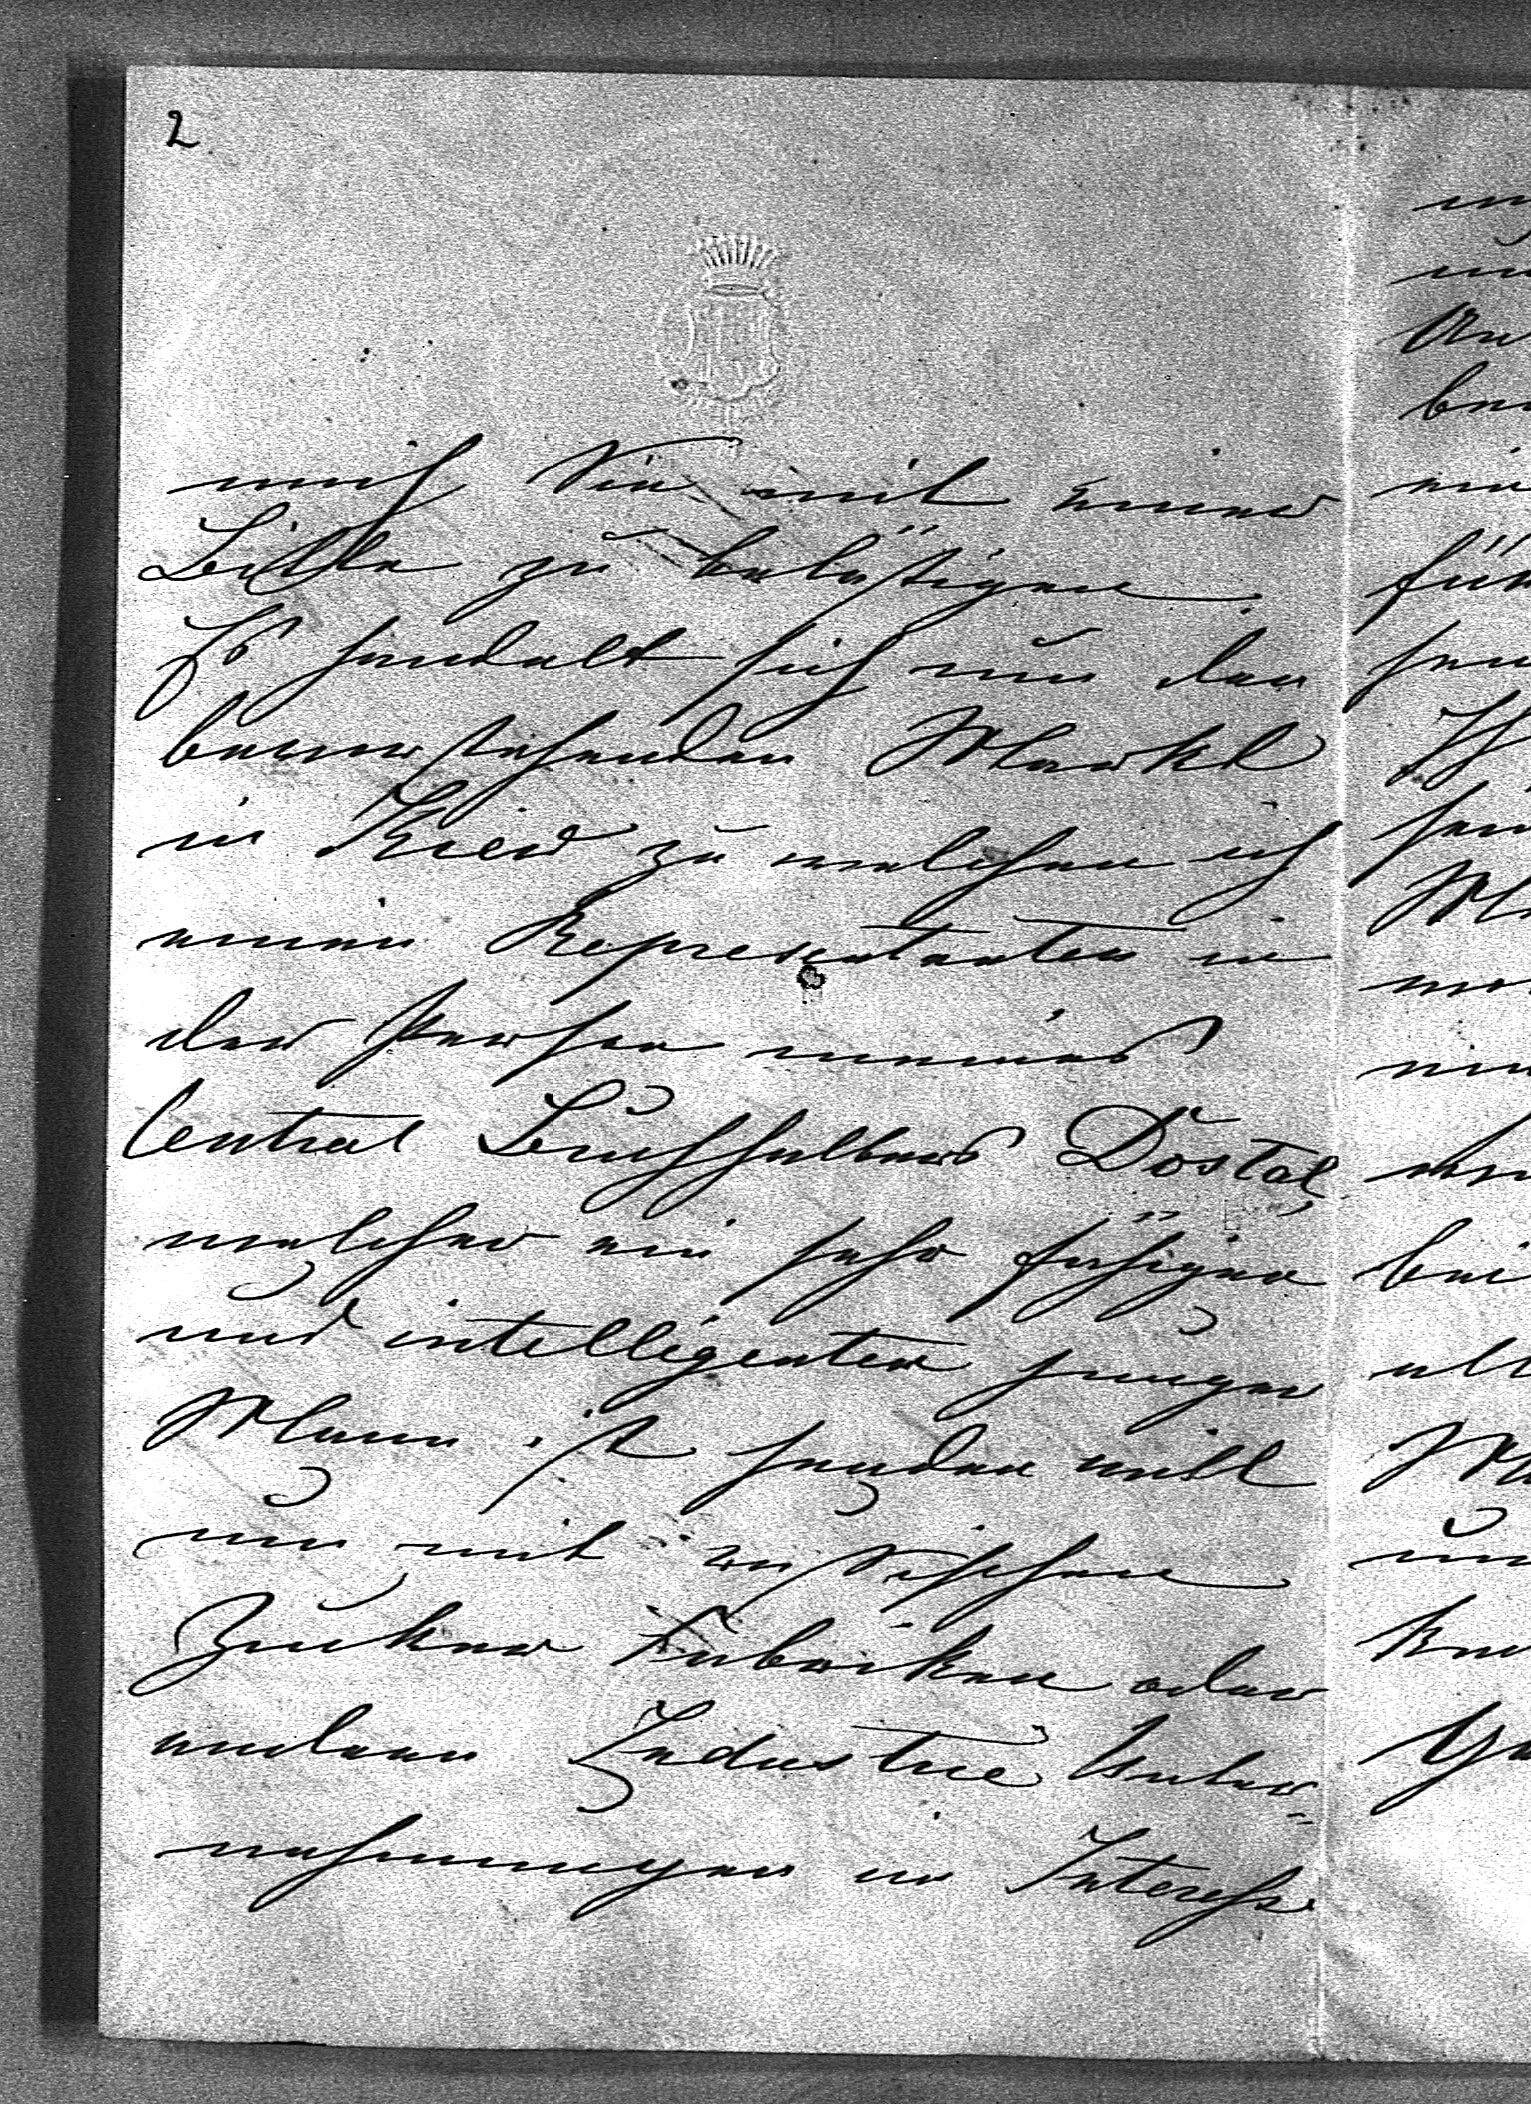 2
mich Sie mit einer
Bitte zu belästigen.
Es handelt sich um den
bevorstehenden Markt
in Kiew zu welchen ich
einen Representanten in
der Person meines
Central Buchhalters Dostal,
welcher ein sehr fähiger
und intelligenter junger
Mann ist senden will
um mit russischen
Zucker Fabriken oder
anderen Industrie Unter=
nehmungen in Interesse